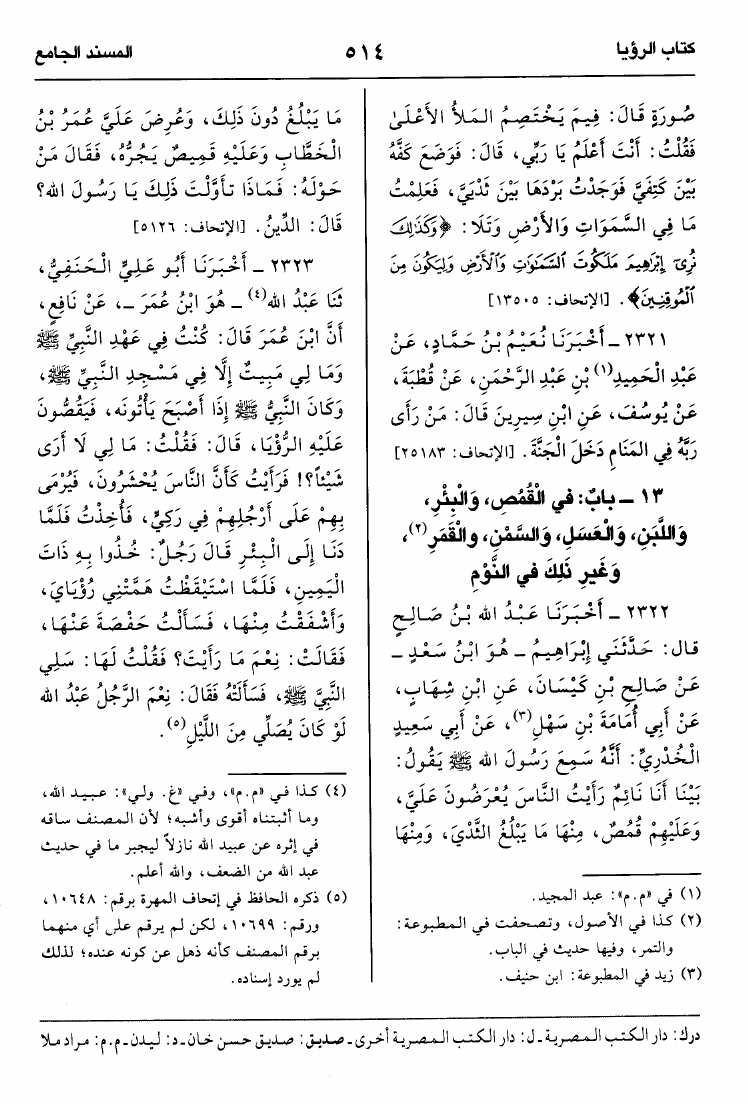 كتاب الرؤيا
٥١٤
المسند الجامع
صُورَةٍ قَالَ: فِيمَ يَخْتَصِمُ المَلأُ الأَعْلَىٰ
فَقُلْتُ: أَنْتَ أَعْلَمُ يَا رَبِّي، قَالَ: فَوَضَعَ كَفَّهُ
بَيْنَ كَتِفَيَّ فَوَجَدْتُ بَرْدَهَا بَيْنَ ثَدْيَيَّ، فَعَلِمْتُ
مَا فِي السَّمَوَاتِ وَالأَرْضِ وَتَلَا: ﴿وَكَذَٰلِكَ
نُرِىٓ إِبْرَٰهِيمَ مَلَكُوتَ ٱلسَّمَٰوَٰتِ وَٱلْأَرْضِ وَلِيَكُونَ مِنَ
ٱلْمُوقِنِينَ﴾. [الإتحاف: ١٣٥٠٥]
٢٣٢١ ـ أَخْبَرَنَا نُعَيْمُ بْنُ حَمَّادٍ، عَنْ
عَبْدِ الْحَمِيدِ(١) بْنِ عَبْدِ الرَّحْمَنِ، عَنْ قُطْبَةَ،
عَنْ يُوسُفَ، عَنِ ابْنِ سِيرِينَ قَالَ: مَنْ رَأَى
رَبَّهُ فِي المَنَامِ دَخَلَ الْجَنَّةَ. [الإتحاف: ٢٥١٨٣]
١٣ ـ بابٌ: في الْقُمُصِ، وَالْبِئْرِ،
وَاللَّبَنِ، وَالْعَسَلِ، وَالسَّمْنِ، والْقَمَرِ(٢)،
وَغَيرِ ذَلِكَ في النَّوْمِ
٢٣٢٢ ـ أَخْبَرَنَا عَبْدُ الله بْنُ صَالِحٍ
قال: حَدَّثَنِي إِبْرَاهِيمُ ـ هُوَ ابْنُ سَعْدٍ ـ
عَنْ صَالِحِ بْنِ كَيْسَانَ، عَنِ ابْنِ شِهَابٍ،
عَنْ أَبِي أُمَامَةَ بْنِ سَهْلٍ(٣)، عَنْ أَبِي سَعِيدٍ
الْخُدْرِيِّ: أَنَّهُ سَمِعَ رَسُولَ الله ﷺ يَقُولُ:
بَيْنَا أَنَا نَائِمٌ رَأَيْتُ النَّاسَ يُعْرَضُونَ عَلَيَّ،
وَعَلَيْهِمْ قُمُصٌ، مِنْهَا مَا يَبْلُغُ الثَّدْيَ، وَمِنْهَا
(١) في «م.م»: عبد المجيد.
(٢) كذا في الأصول، وتصحفت في المطبوعة:
والتمر، وفيها حديث في الباب.
(٣) زيد في المطبوعة: ابن حنيف.
مَا يَبْلُغُ دُونَ ذَلِكَ، وَعُرِضَ عَلَيَّ عُمَرُ بْنُ
الْخَطَّابِ وَعَلَيْهِ قَمِيصٌ يَجُرُّهُ، فَقَالَ مَنْ
حَوْلَهُ: فَمَاذَا تَأَوَّلْتَ ذَلِكَ يَا رَسُولَ الله؟
قَالَ: الدِّينُ. [الإتحاف: ٥١٢٦]
٢٣٢٣ ـ أَخْبَرَنَا أَبُو عَلِيٍّ الْحَنَفِيُّ،
ثَنَا عَبْدُ الله(٤) ـ هُوَ ابْنُ عُمَرَ ـ، عَنْ نَافِعٍ،
أَنَّ ابْنَ عُمَرَ قَالَ: كُنْتُ فِي عَهْدِ النَّبِيِّ ﷺ
وَمَا لِي مَبِيتٌ إِلَّا فِي مَسْجِدِ النَّبِيِّ ﷺ،
وَكَانَ النَّبِيُّ ﷺ إِذَا أَصْبَحَ يَأْتُونَه، فَيَقُصُّونَ
عَلَيْهِ الرُّؤْيَا، قَالَ: فَقُلْتُ: مَا لِي لَا أَرَى
شَيْئاً؟! فَرَأَيْتُ كَأَنَّ النَّاسَ يُحْشَرُونَ، فَيُرْمَى
بِهِمْ عَلَى أَرْجُلِهِمْ فِي رَكِيٍّ، فَأُخِذْتُ فَلَمَّا
دَنَا إِلَى الْبِئْرِ قَالَ رَجُلٌ: خُذُوا بِهِ ذَاتَ
الْيَمِينِ، فَلَمَّا اسْتَيْقَظْتُ هَمَّتْنِي رُؤْيَايَ،
وَأَشْفَقْتُ مِنْهَا، فَسَأَلْتُ حَفْصَةَ عَنْهَا،
فَقَالَتْ: نِعْمَ مَا رَأَيْتَ؟ فَقُلْتُ لَهَا: سَلِي
النَّبِيَّ ﷺ، فَسَأَلَتْهُ فَقَالَ: نِعْمَ الرَّجُلُ عَبْدُ الله
لَوْ كَانَ يُصَلِّي مِنَ اللَّيْلِ(٥).
(٤) كذا في «م.م»، وفي «غ. ولي»: عبيد الله،
وما أثبتناه أقوى وأشبه؛ لأن المصنف ساقه
في إثره عن عبيد الله نازلاً ليجبر ما في حديث
عبد الله من الضعف، والله أعلم.
(٥) ذكره الحافظ في إتحاف المهرة برقم: ١٠٦٤٨،
ورقم: ١٠٦٩٩، لكن لم يرقم على أي منهما
برقم المصنف كأنه ذهل عن كونه عنده؛ لذلك
لم يورد إسناده.
درك: دار الكتب المصرية ـ ل: دار الكتب المصرية أخرى ـ صديق: صديق حسن خان ـ د: ليدن ـ م.م: مراد ملا